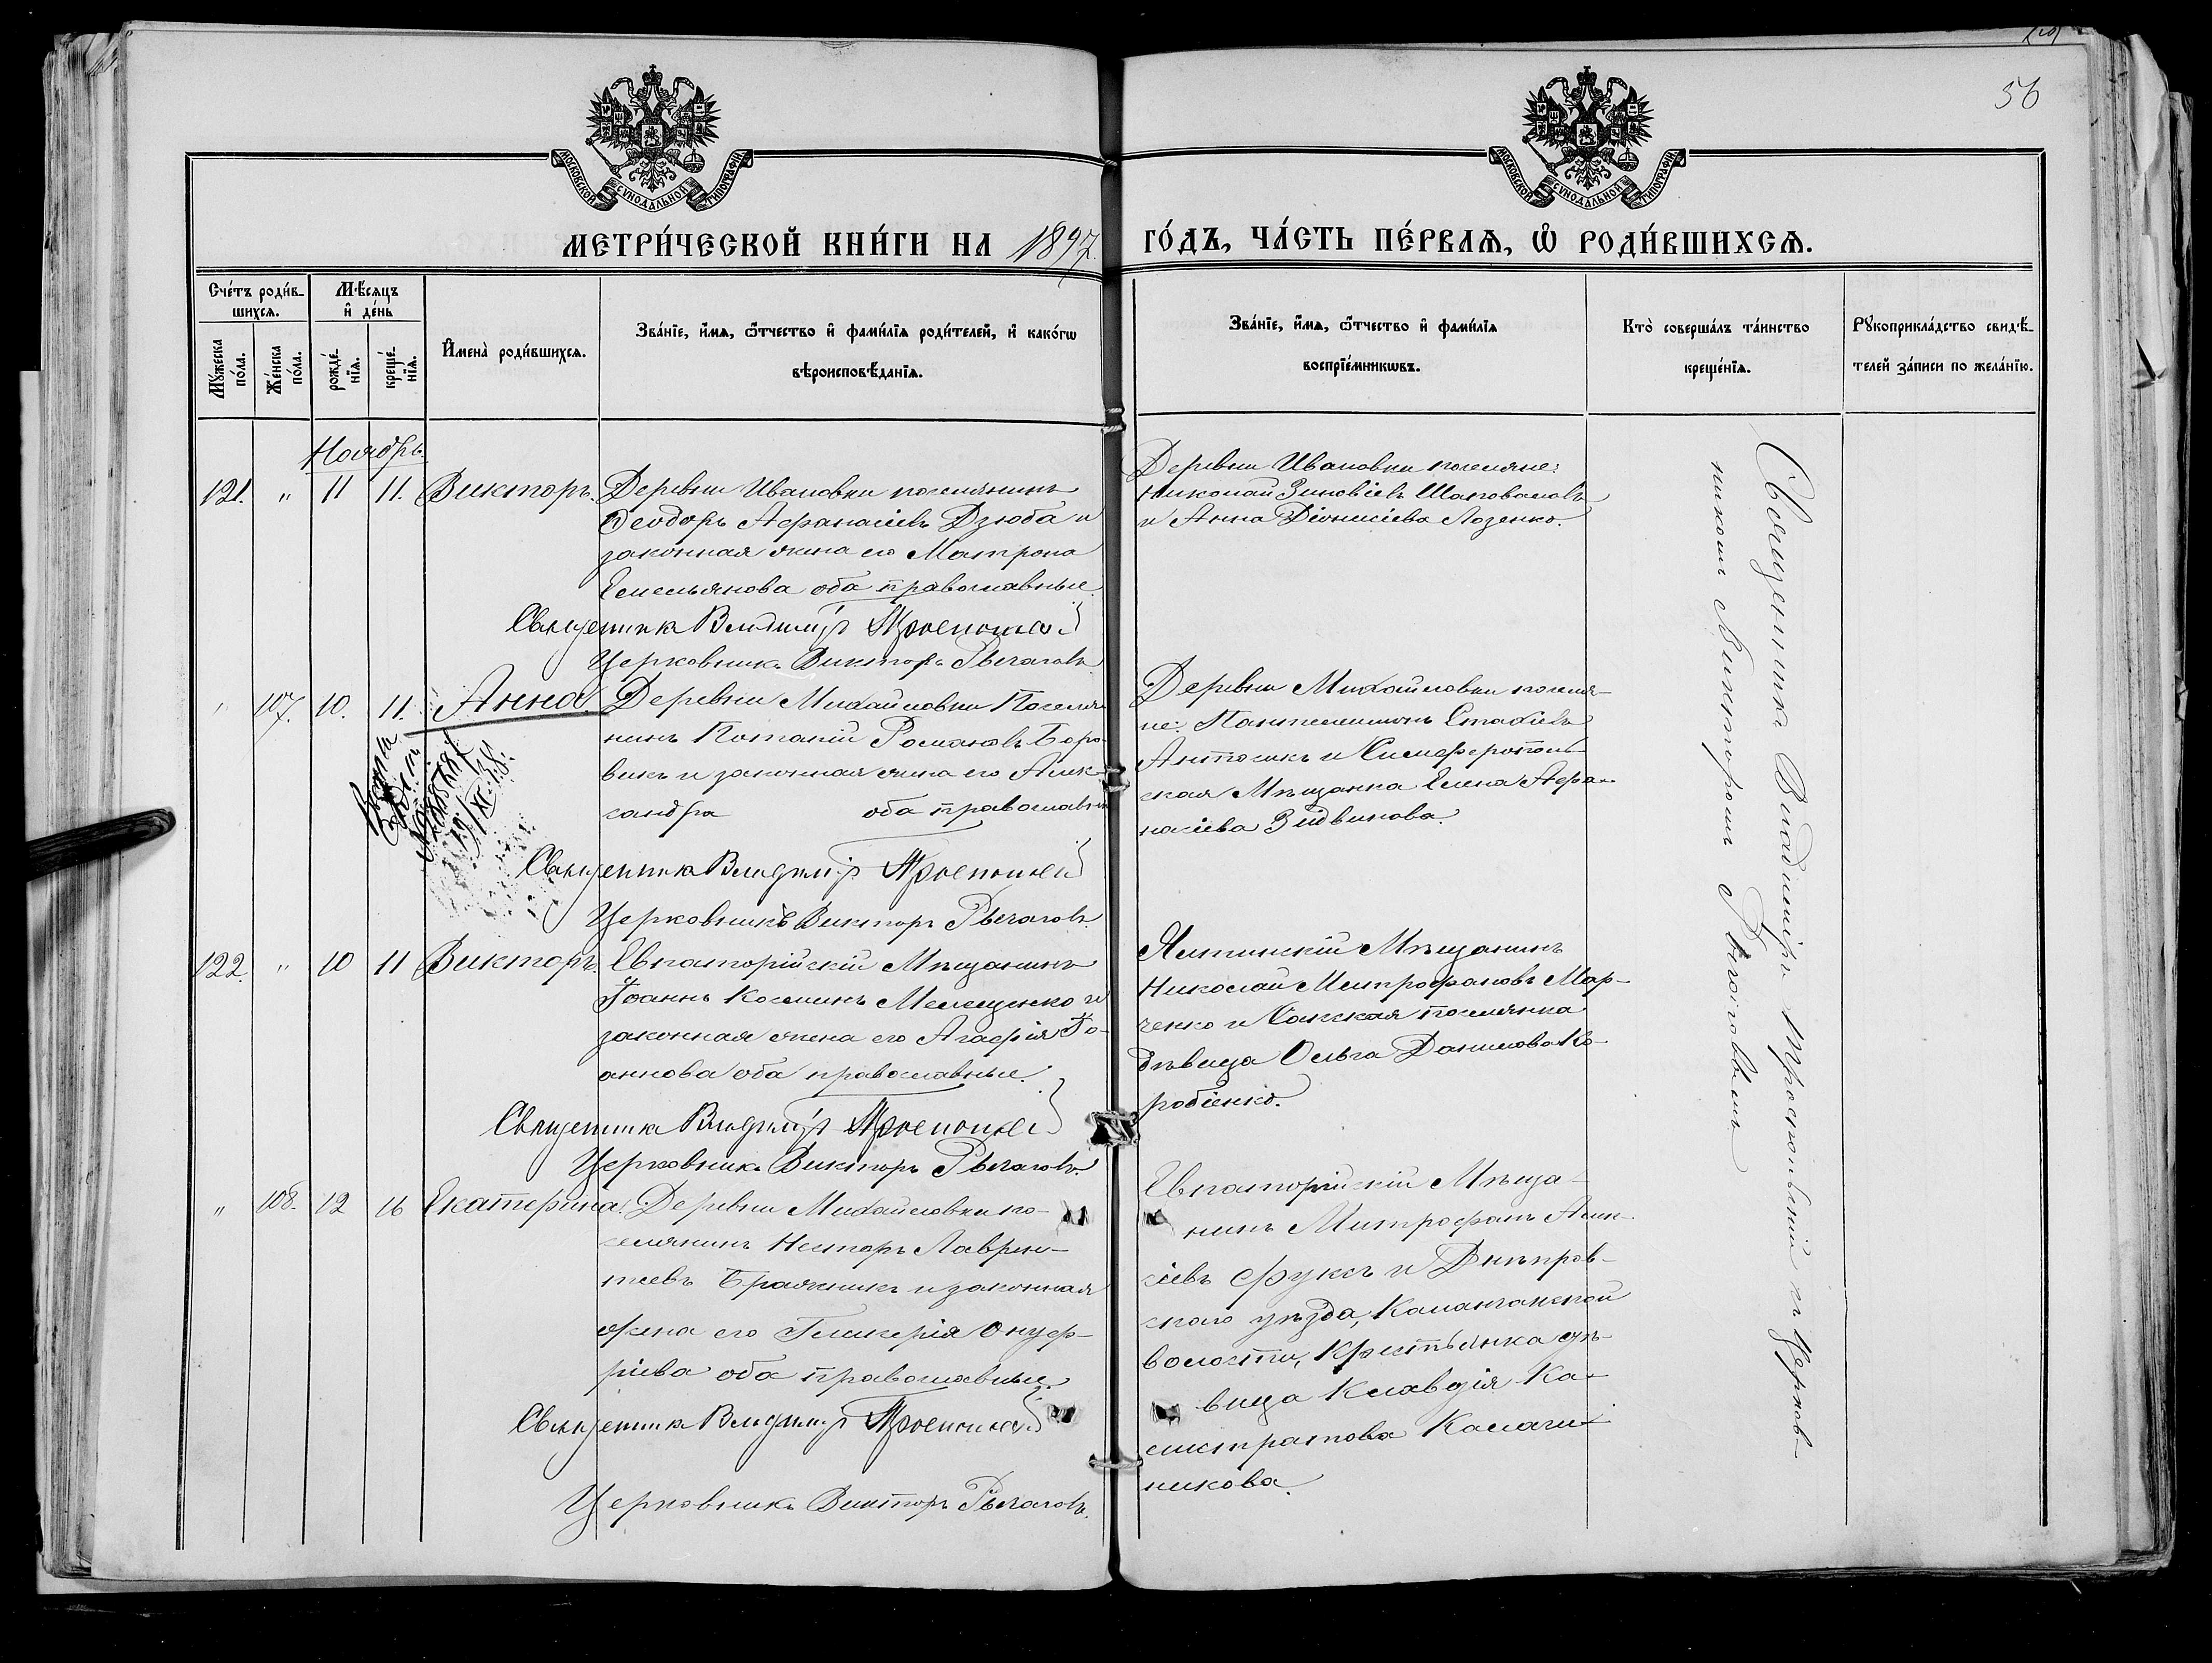 56
МОСКОВСКОЙ СѴНОДАЛЬНОЙ ТИПОГРАФІИ
МОСКОВСКОЙ СѴНОДАЛЬНОЙ ТИПОГРАФІИ
МЕТРИ́ЧЕСКОЙ КНИ́ГИ НА 1897 ГО́ДЪ, ЧА́СТЬ ПЕ́РВАѦ, Ѡ҆ РОДИ́ВШИХСѦ.
Сче́тъ роди́в-
шихсѧ.
Мѣ́сѧцъ
и҆ де́нь
Мꙋ́жеска
по́ла.
Же́нска
по́ла.
рожде́-
нїѧ.
креще́-
нїѧ.
И҆мена̀ роди́вшихсѧ.
Зва́нїе, и҆́мѧ, ѻ҆́тчество и҆ фами́лїѧ роди́телей, и҆ како́гѡ
вѣроисповѣ́данїѧ.
Зва́нїе, и҆́мѧ, ѻ҆́тчество и҆ фами́лїѧ
воспрїе́мникѡвъ.
Кто̀ соверша́лъ та́инство
креще́нїѧ.
Рꙋкоприкла́дство свидѣ́-
телей за́писи по жела́нїю.
Ноябрь.
121. " 11 11. Викторъ. Деревни Ивановки поселянинъ
Ѳеодоръ Аѳанасіевъ Дзюба и
законная жена его Матрона
Емельянова оба православные.
Священникъ Владиміръ
Церковникъ Викторъ Рычаговъ
Деревни Ивановки поселяне:
Николай Зиновіевъ Шаповаловъ
и Анна Діонисіева Лозенко.
" 107. 10. 11. Анна Деревни Михайловки Поселя-
нинъ Потапій Романовъ Боро-
викъ и законная жена его Алек-
сандра оба православные
Священникъ Владиміръ
Церковникъ Викторъ Рычаговъ.
Деревни Михайловки поселя-
не: Пантелеимонъ Стахіевъ
Антосикъ и Симферополь-
ская Мѣщанка Елена Аѳа-
насіева
122. " 10 11 Викторъ. Евпаторійскій Мѣщанинъ
Іоаннъ Косминъ Мелещенко и
законная жена его Агаѳія Іо-
аннова оба православные.
Священникъ Владиміръ
Церковникъ Викторъ Рычаговъ.
Ялтинскій Мѣщанинъ
Николай Митрофановъ Мар-
ченко и Сакская поселянка
дѣвица Ольга Данилова Ко-
робіенко.
" 108. 12 16 Екатерина. Деревни Михайловки по-
селянинъ Несторъ Лаврен-
тіевъ Бражникъ и законная
жена его Гликерія Онуф-
ріева оба православные.
Священникъ Владиміръ
Церковникъ Викторъ Рычаговъ.
Евпаторійскій Мѣща-
нинъ Митрофанъ Алек-
сіевъ Фуксъ и Днѣпров-
скаго уѣзда, Каланчакской
волости, Крестьянка дѣ-
вица Клавдія Ка-
листратова Калачи-
никова.
Священникъ Владиміръ съ Церков-
никомъ Викторомъ Рычаговымъ